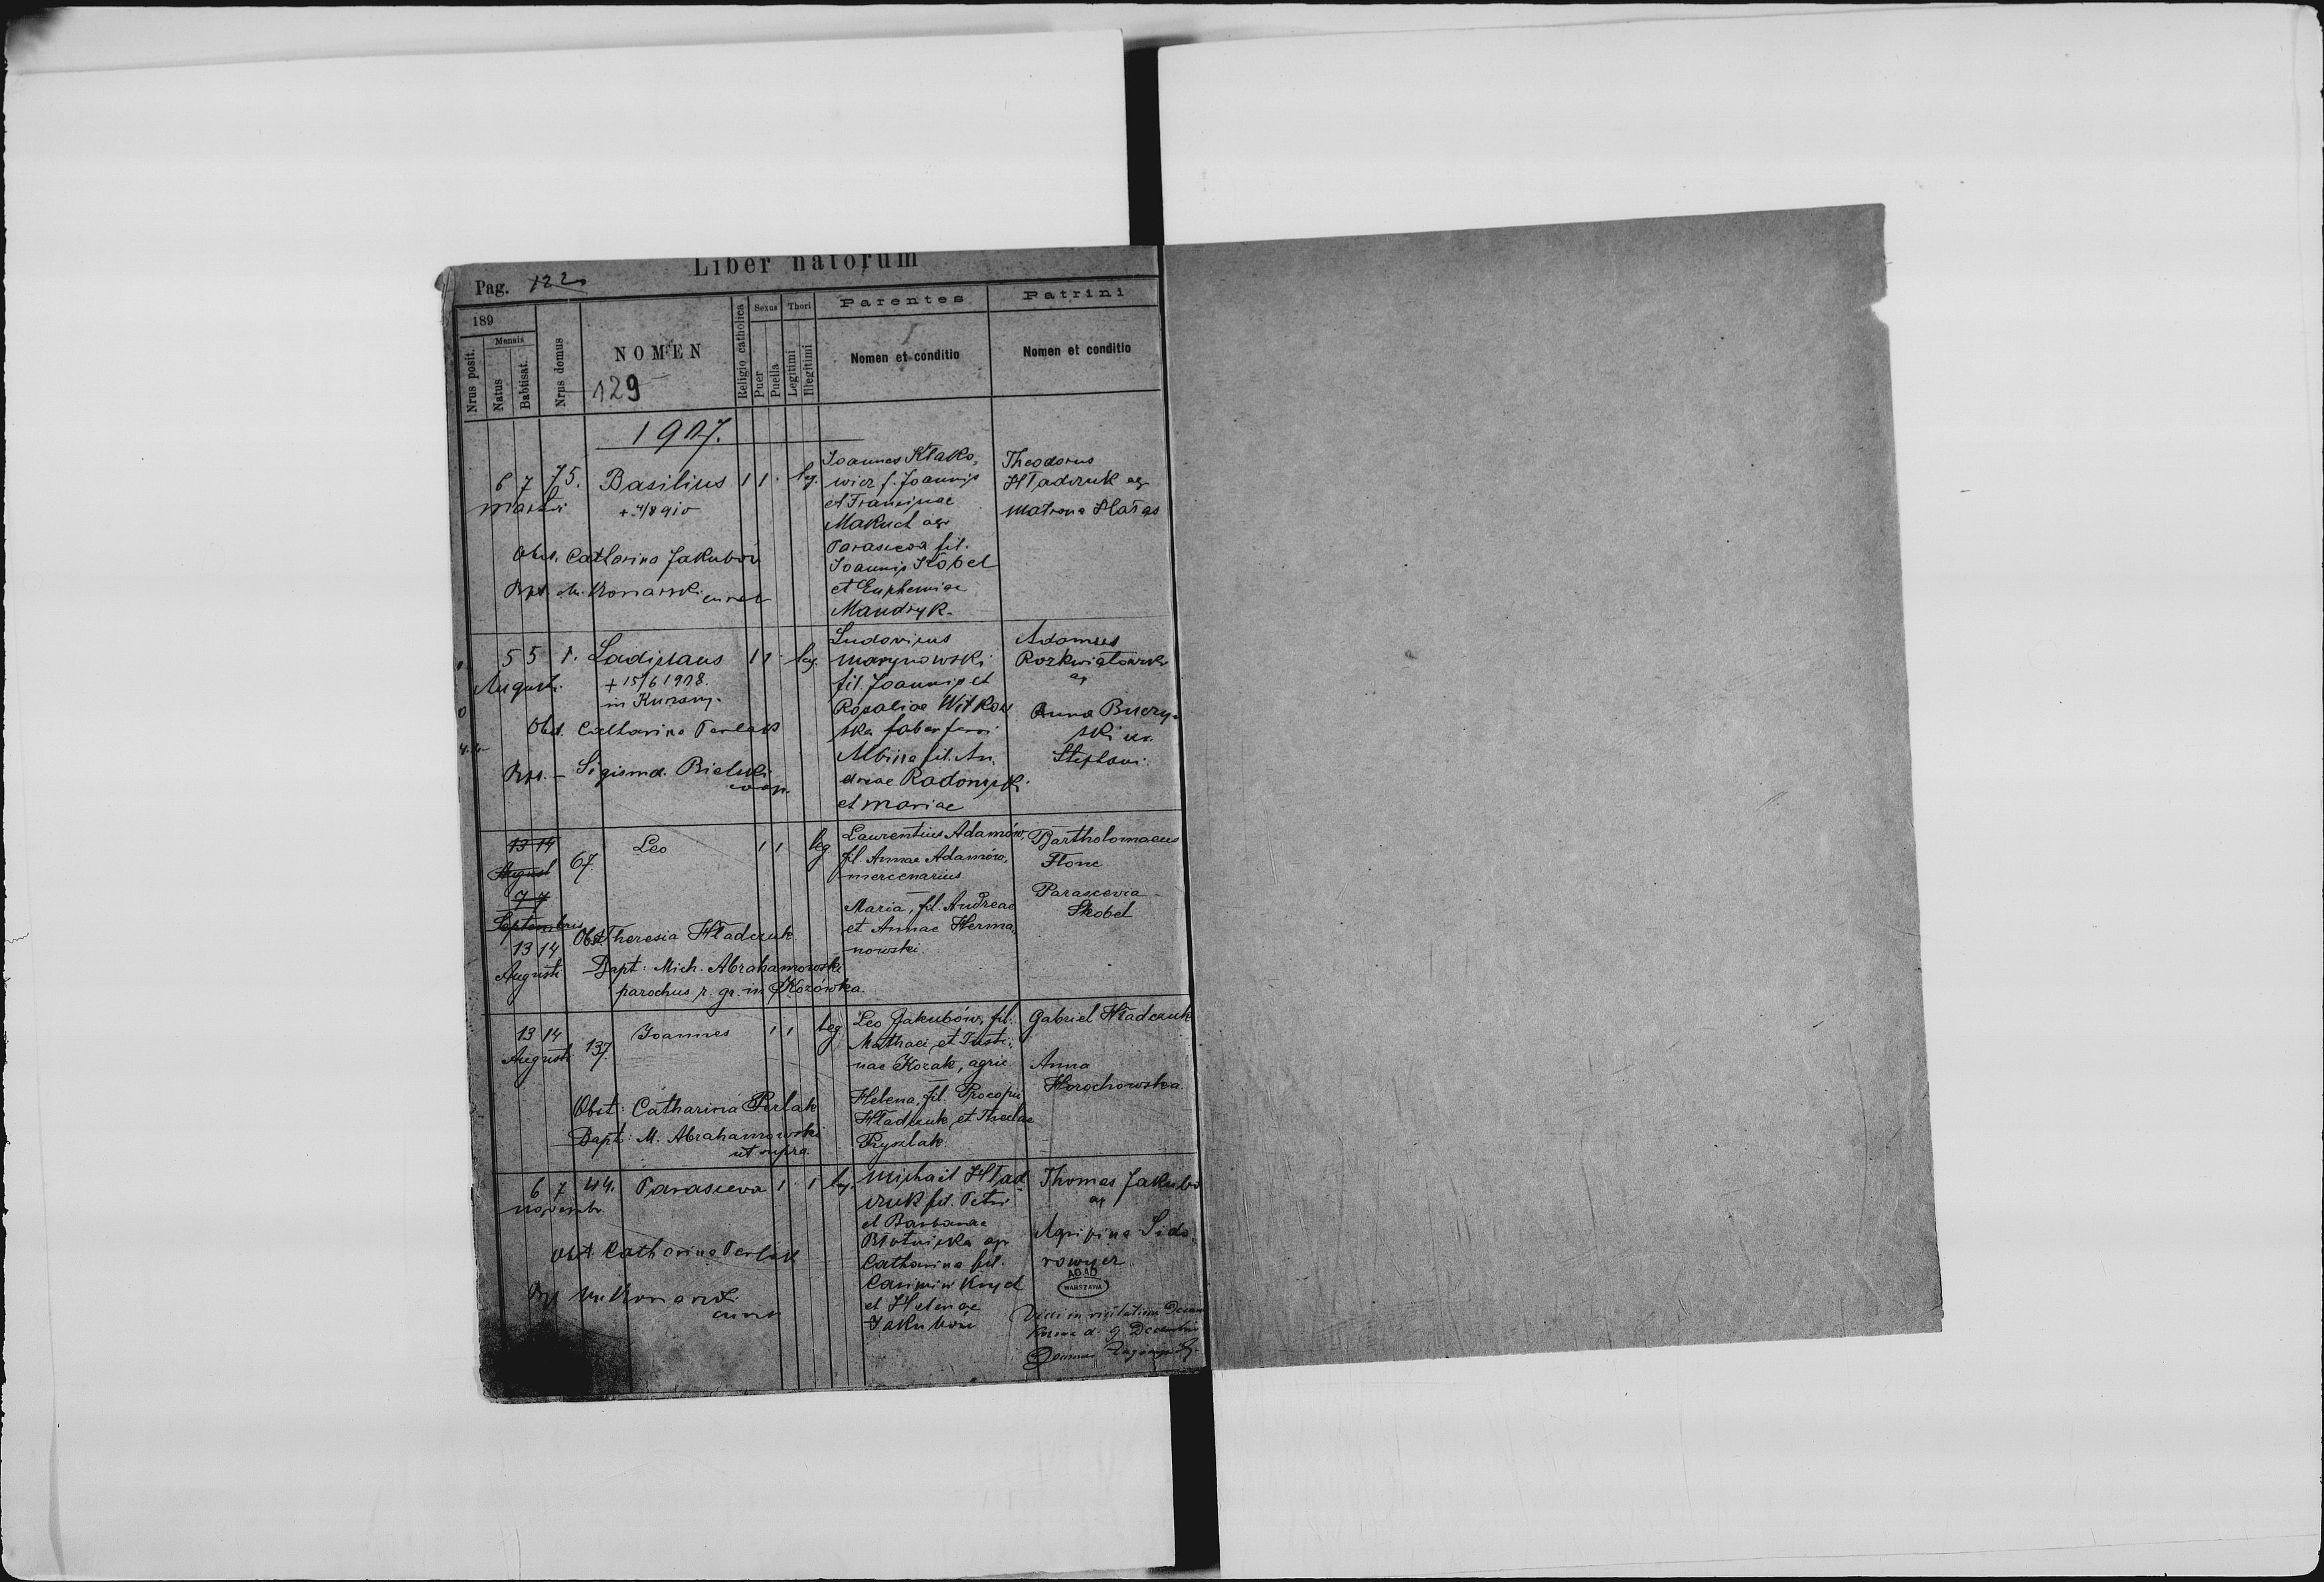 Liber natorum
Pag. 122
189
Nrus posit.
Mensis
Natus
Babtisat.
Nrus domus
NOMEN
129
Religio catholica
Sexus
Puer
Puella
Thori
Legitimi
Illegitimi
Parentes
Nomen et conditio
Patrini
Nomen et conditio
1907.
6 7 75. Basilius 1 1 leg.
Martii
Obst. Catharina Jakubów
Bpt. M. Konarski
Joannes Klako,
wicz f. Joannis
et Francinae
Makuch agr
Parascewa fil.
Joannis Skobel
et Euphemiae
Mandryk.
Theodorus
Hładczuk agr
Matrona Hałas
5 5 1. Ladislaus 1 1 leg.
Augusti + 15/6 1908.
in
Obst. Catharina Perlak
Bpt. - Sigismd. Bielski
coop.
Ludovicus
Marynowski
fil. Joannis et
Rosaliae Witkow
ska faber ferri
Albina fil. An,
dreae Radomski
et Mariae
Adamus
Rozkwiatowski
Anna Buczy,
ski ux.
Stephani.
13 14
August
7 7
Septembris
13 14
Augusti
67. Leo 1 1 leg
Obst. Theresia Hładczuk.
Bapt: Mich. Abrahamowski
parochus r. gr. in Kozówka.
Laurentius Adamów,
fil Annae Adamów,
mercenarius
Maria, fil. Andreae
et Annae Herma,
nowski.
Bartholomaeus
Flonc
Parascevia
Skobel
13 14
Augusti 137. Joannes 1 1 leg
Obst: Catharina Perlak
Bapt: M. Abrahamowski
ut supra.
Leo Jakubów, fil.
Mathaei et Justi,
nae Kozak, agric.
Helena, fil. Procopii
Hładczuk et Theclae
Pryszlak.
Gabriel Hładczuk
Anna
Horochowska.
6 7 44. Parascewa 1 1 leg.
Novembr.
Obst Catharina Perlak
Michael Hład,
czuk fil. Petri
et Barbarae
Błotnicka agr
Catharina fil.
Casimiri
et Helenae
Jakubów
Thomas Jakubo
Agripina Sido,
rowycz
AGAD
WARSZAWA
d. 9 Decembris